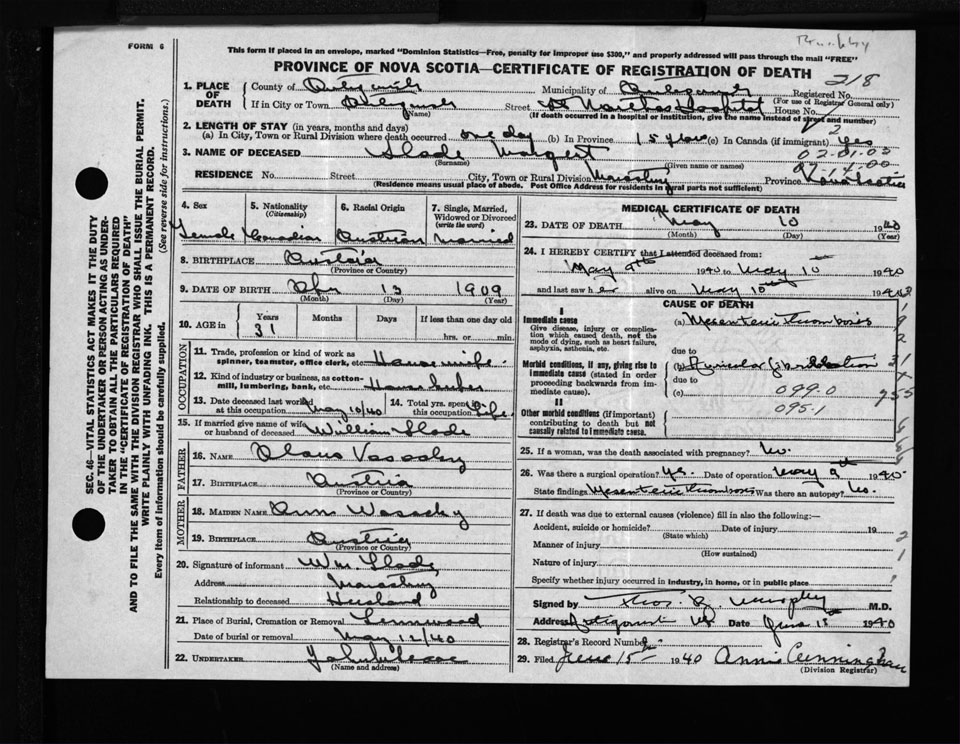 FORM 6
This form if placed in an envelope, marked "Dominion Statistics—Free, penalty for improper use $300," and properly addressed will pass through the mail "FREE"
PROVINCE OF NOVA SCOTIA—CERTIFICATE OF REGISTRATION OF DEATH
218
1. PLACE OF DEATH
County of Antigonish Municipality of Antigonish Registered No.
(For use of Registrar General only)
If in City or Town Antigonish Street St Martha's Hospital House No.
(Name)
(If death occurred in a hospital or institution, give the name instead of street and number)
2. LENGTH OF STAY (in years, months and days)
(a) In City, Town or Rural Division where death occurred one day (b) In Province 15 years (c) In Canada (if immigrant) yes
3. NAME OF DECEASED Slade Margert
(Surname) (Given name or names)
02-01-00
RESIDENCE No. Street City, Town or Rural Division Province Nova Scotia
(Residence means usual place of abode. Post Office Address for residents in rural parts not sufficient)
4. Sex
Female
5. Nationality (Citizenship)
Canadian
6. Racial Origin
Austrian
7. Single, Married, Widowed or Divorced (write the word)
Married
8. BIRTHPLACE Austria
(Province or Country)
9. DATE OF BIRTH Apr 13 1909
(Month) (Day) (Year)
10. AGE in Years Months Days If less than one day old
31 hrs. or min.
OCCUPATION
11. Trade, profession or kind of work as spinner, teamster, office clerk, etc. Housewife
12. Kind of industry or business, as cotton-mill, lumbering, bank, etc.
13. Date deceased last worked at this occupation May 10/40
14. Total yrs. spent in this occupation Life
15. If married give name of wife or husband of deceased William Slade
FATHER
16. NAME
17. BIRTHPLACE Austria
(Province or Country)
MOTHER
18. MAIDEN NAME Ann
19. BIRTHPLACE Austria
(Province or Country)
20. Signature of informant Wm Slade
Address
Relationship to deceased Husband
21. Place of Burial, Cremation or Removal Linwood
Date of burial or removal May 12/40
22. UNDERTAKER
(Name and address)
MEDICAL CERTIFICATE OF DEATH
23. DATE OF DEATH May 10 1940
(Month) (Day) (Year)
24. I HEREBY CERTIFY that I attended deceased from:
May 9th 1940 to May 10th 1940
and last saw her alive on May 10th 1940
CAUSE OF DEATH
I
Immediate cause
Give disease, injury or complication which caused death, not the mode of dying, such as heart failure, asphyxia, asthenia, etc.
(a) Mesenteric thrombosis
due to
Morbid conditions, if any, giving rise to immediate cause (stated in order proceeding backwards from immediate cause).
(b) Auricular fibrillation
due to
(c) 099.0
095.1
II
Other morbid conditions (if important) contributing to death but not causally related to immediate cause.
25. If a woman, was the death associated with pregnancy? No.
26. Was there a surgical operation? Yes. Date of operation May 9th 1940
State findings Mesenteric thrombosis Was there an autopsy? No.
27. If death was due to external causes (violence) fill in also the following:—
Accident, suicide or homicide? Date of injury 19
(State which)
Manner of injury
(How sustained)
Nature of injury
Specify whether injury occurred in industry, in home, or in public place
Signed by Thos. B. Murphy M.D.
Address Antigonish NS Date June 15th 1940
28. Registrar's Record Number
29. Filed June 15th 1940 Annie Cunningham
(Division Registrar)
SEC. 46—VITAL STATISTICS ACT MAKES IT THE DUTY OF THE UNDERTAKER OR PERSON ACTING AS UNDERTAKER TO OBTAIN ALL THE PARTICULARS REQUIRED IN THE "CERTIFICATE OF REGISTRATION OF DEATH" AND TO FILE THE SAME WITH THE DIVISION REGISTRAR WHO SHALL ISSUE THE BURIAL PERMIT.
WRITE PLAINLY WITH UNFADING INK. THIS IS A PERMANENT RECORD.
Every item of information should be carefully supplied. (See reverse side for instructions.)